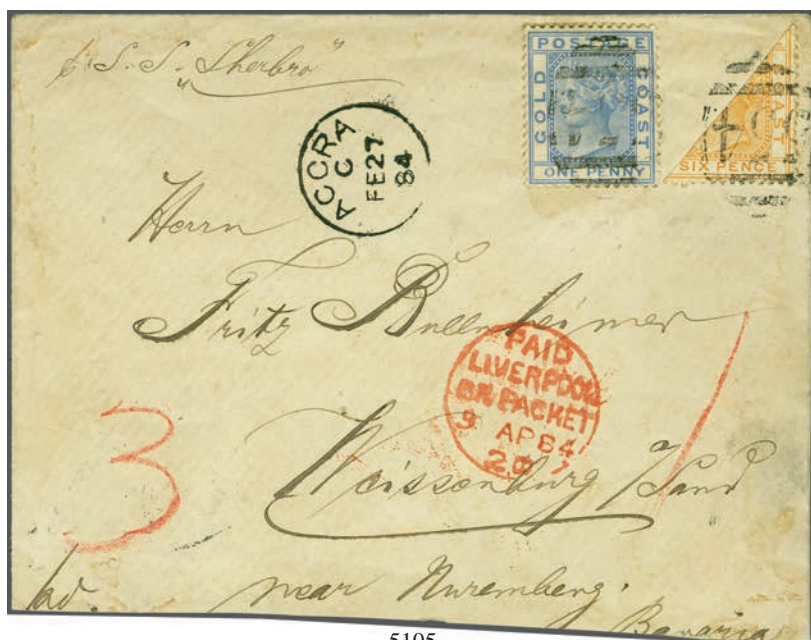 p. S. S. "Sherbro"
POSTAGE
GOLD
COAST
ONE PENNY
COAST
SIX PENCE
ACCRA
C
FE 27
84
Herrn
Fritz
PAID
LIVERPOOL
BR. PACKET
9 AP 84
Weissenburg /Sand
3
near Nuremberg.
Bavaria
5105